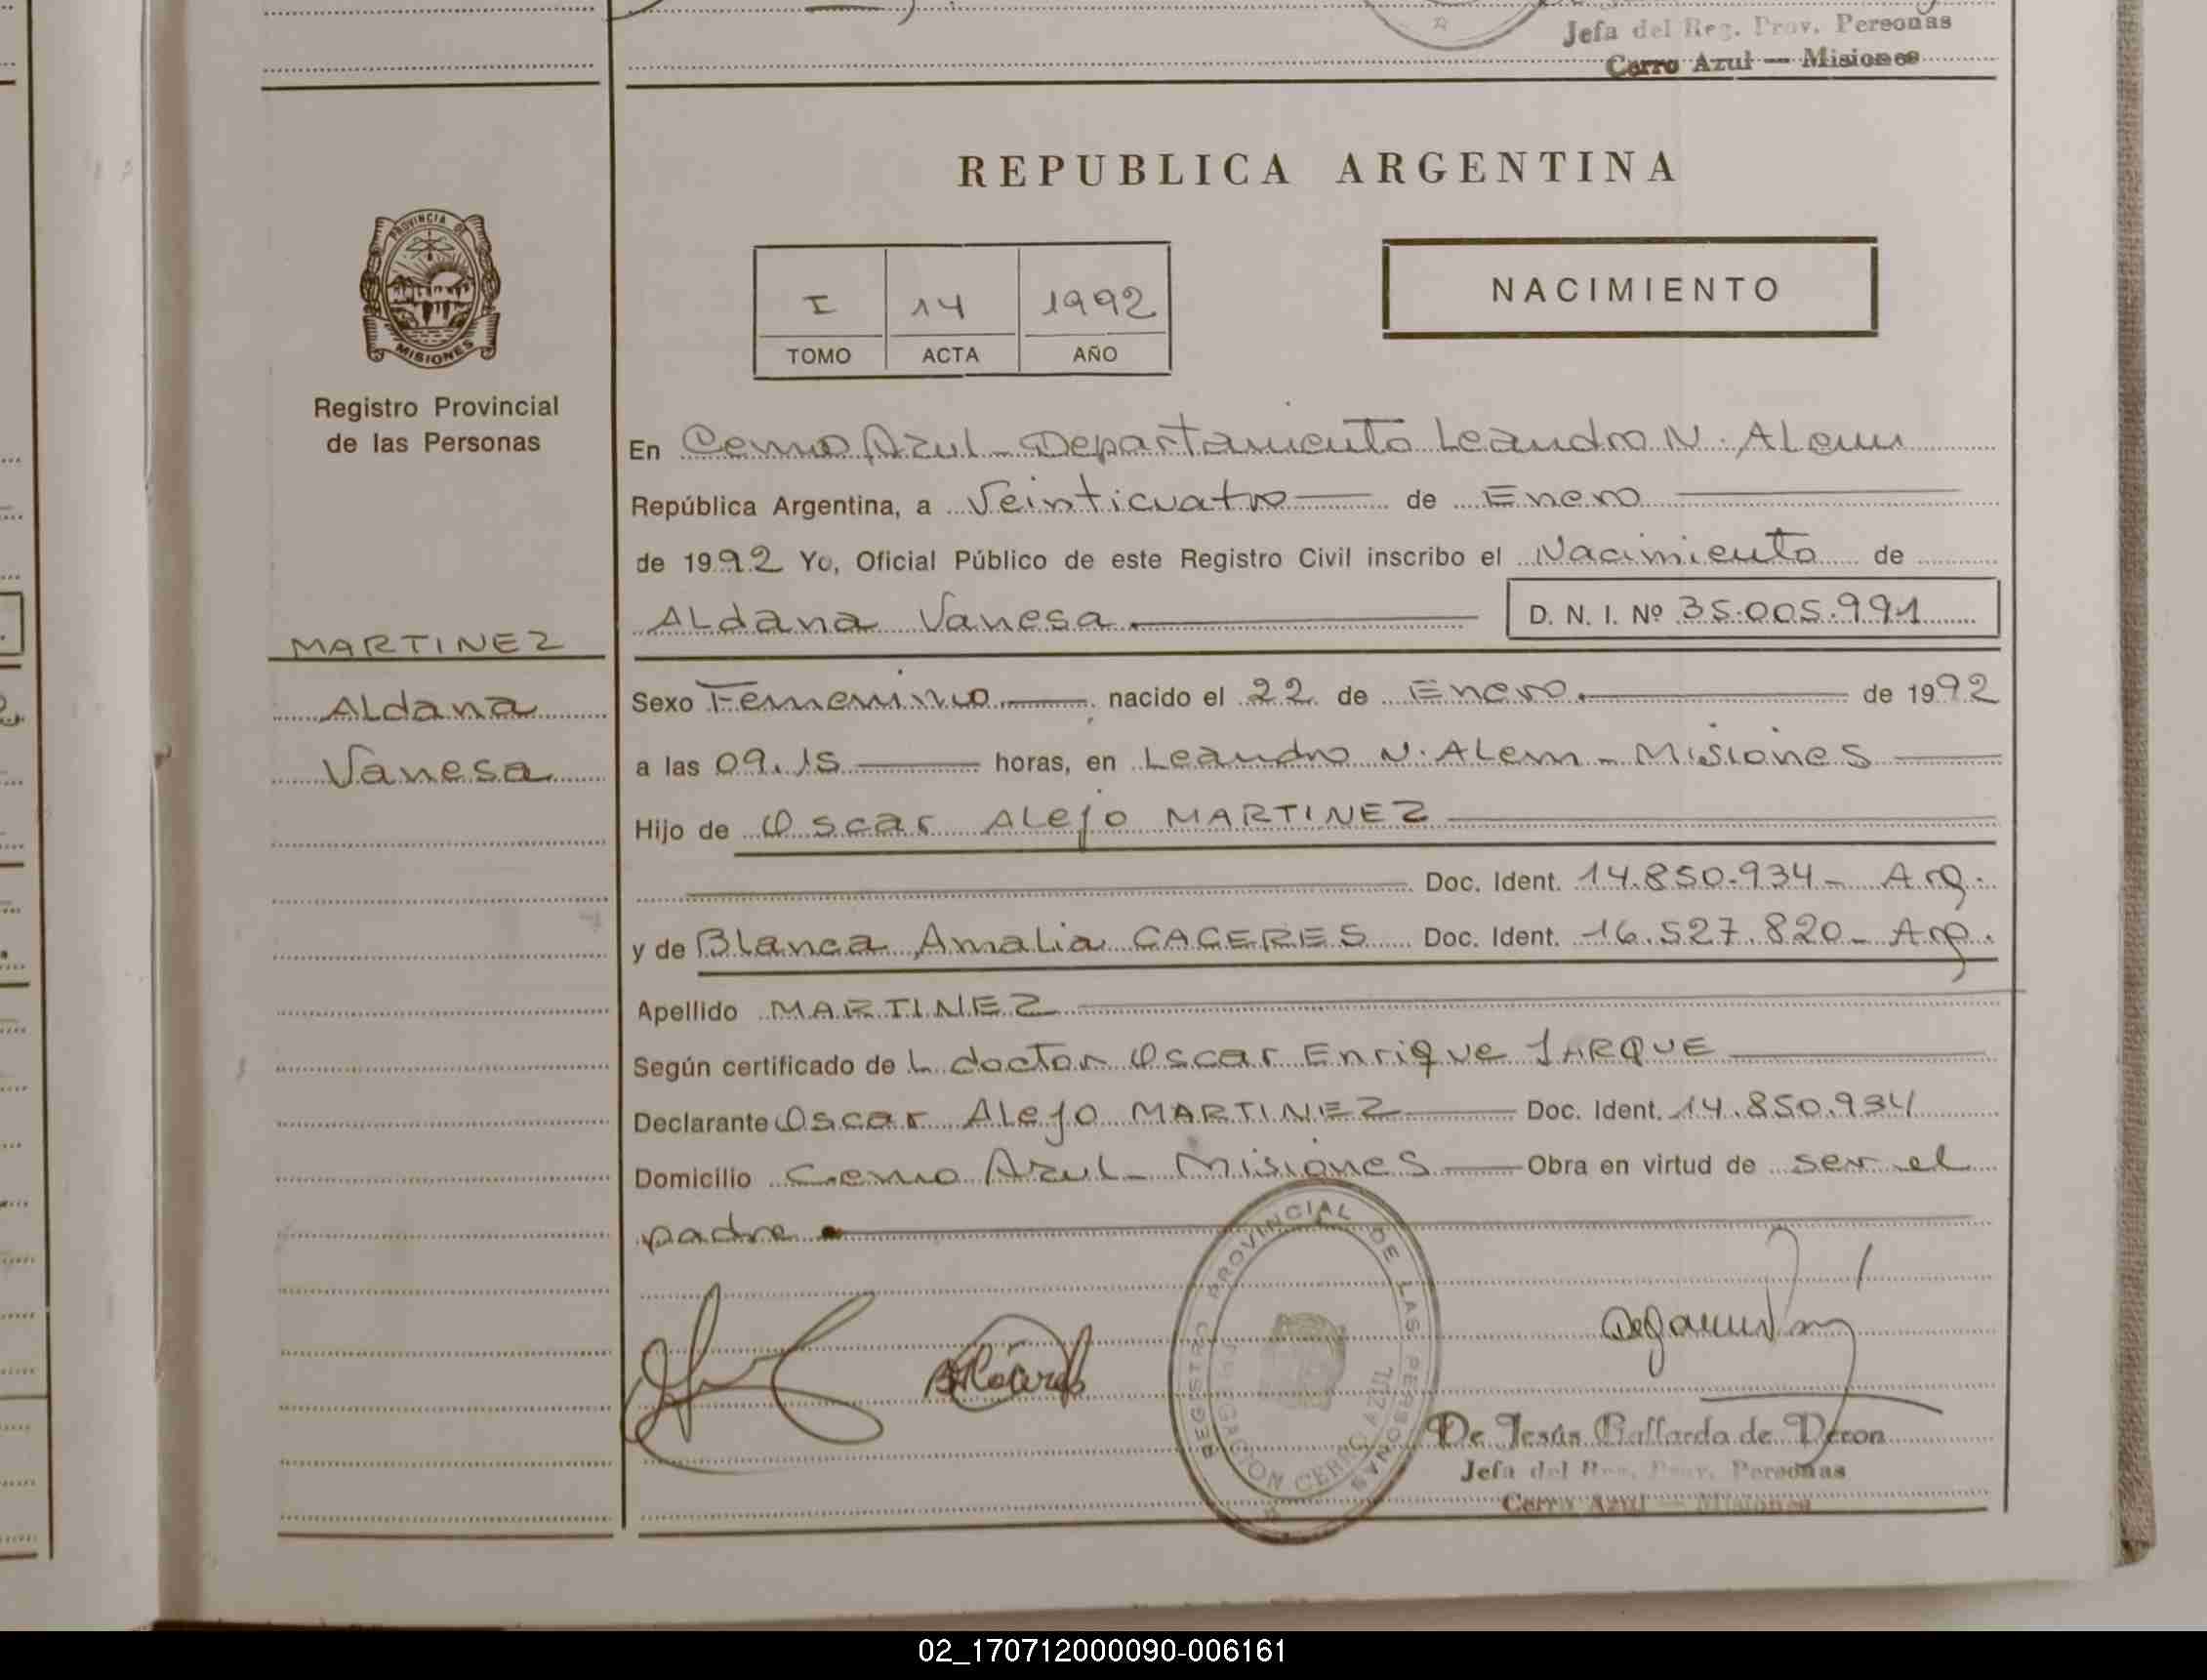 Jefa del Reg. Prov. Personas
Cerro Azul — Misiones
REPUBLICA ARGENTINA
PROVINCIA DE
MISIONES
Registro Provincial
de las Personas
I 14 1992
TOMO ACTA AÑO
NACIMIENTO
En Cerro Azul - Departamento Leandro N. Alem
República Argentina, a Veinticuatro de Enero
de 1992 Yo, Oficial Público de este Registro Civil inscribo el Nacimiento de
Aldana Vanesa.
D. N. I. Nº 35.005.991
MARTINEZ
Aldana
Vanesa
Sexo Femenino nacido el 22 de Enero. de 1992
a las 09.15 horas, en Leandro N. Alem - Misiones
Hijo de Oscar Alejo MARTINEZ
Doc. Ident. 14.850.934 - Arg.
y de Blanca Amalia CACERES Doc. Ident. 16.527.820 - Arg.
Apellido MARTINEZ
Según certificado de L doctor Oscar Enrique JARQUE
Declarante Oscar Alejo MARTINEZ Doc. Ident. 14.850.934
Domicilio Cerro Azul - Misiones Obra en virtud de ser el
padre.
REGISTRO PROVINCIAL DE LAS PERSONAS
CERRO AZUL
De Jesús Gallarda de Veron
Jefa del Reg. Prov. Personas
Cerro Azul — Misiones
02_170712000090-006161